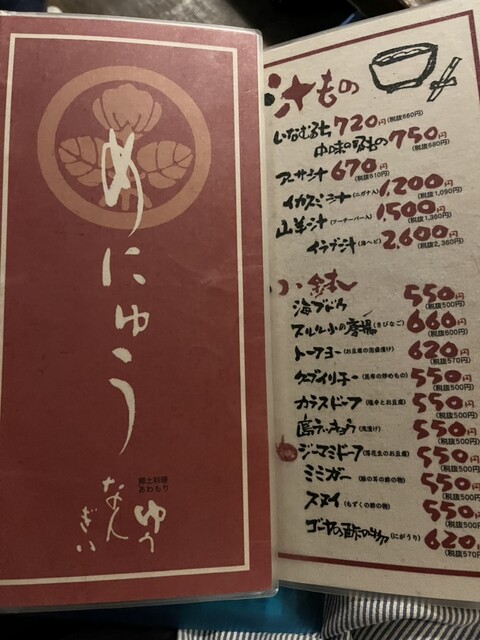 めにゅう
郷土料理
あわもり
ゆう
なんぎい
汁もの
いなむるち 720円(税抜660円)
中味の吸もの 750円(税抜680円)
アーサ汁 670円(税抜610円)
イカスミ汁(ニガナ入) 1,200円(税抜1,090円)
山羊汁(フーチーバー入) 1,500円(税抜1,360円)
イラブ汁(海ヘビ) 2,600円(税抜2,360円)
小鉢
海ブドウ 550円(税抜500円)
スルル小の唐揚(きびなご) 660円(税抜600円)
トーフヨー(お豆腐の泡盛漬け) 620円(税抜570円)
クーブイリチー(昆布の炒めもの) 550円(税抜500円)
カラスドーフ(塩辛とお豆腐) 550円(税抜500円)
島ラッキョウ(浅漬け) 550円(税抜500円)
ジーマミドーフ(落花生のお豆腐) 550円(税抜500円)
ミミガー(豚の耳の酢の物) 550円(税抜500円)
スヌイ(もずくの酢の物) 550円(税抜500円)
ゴーヤの酢の物(にがうり) 620円(税抜570円)